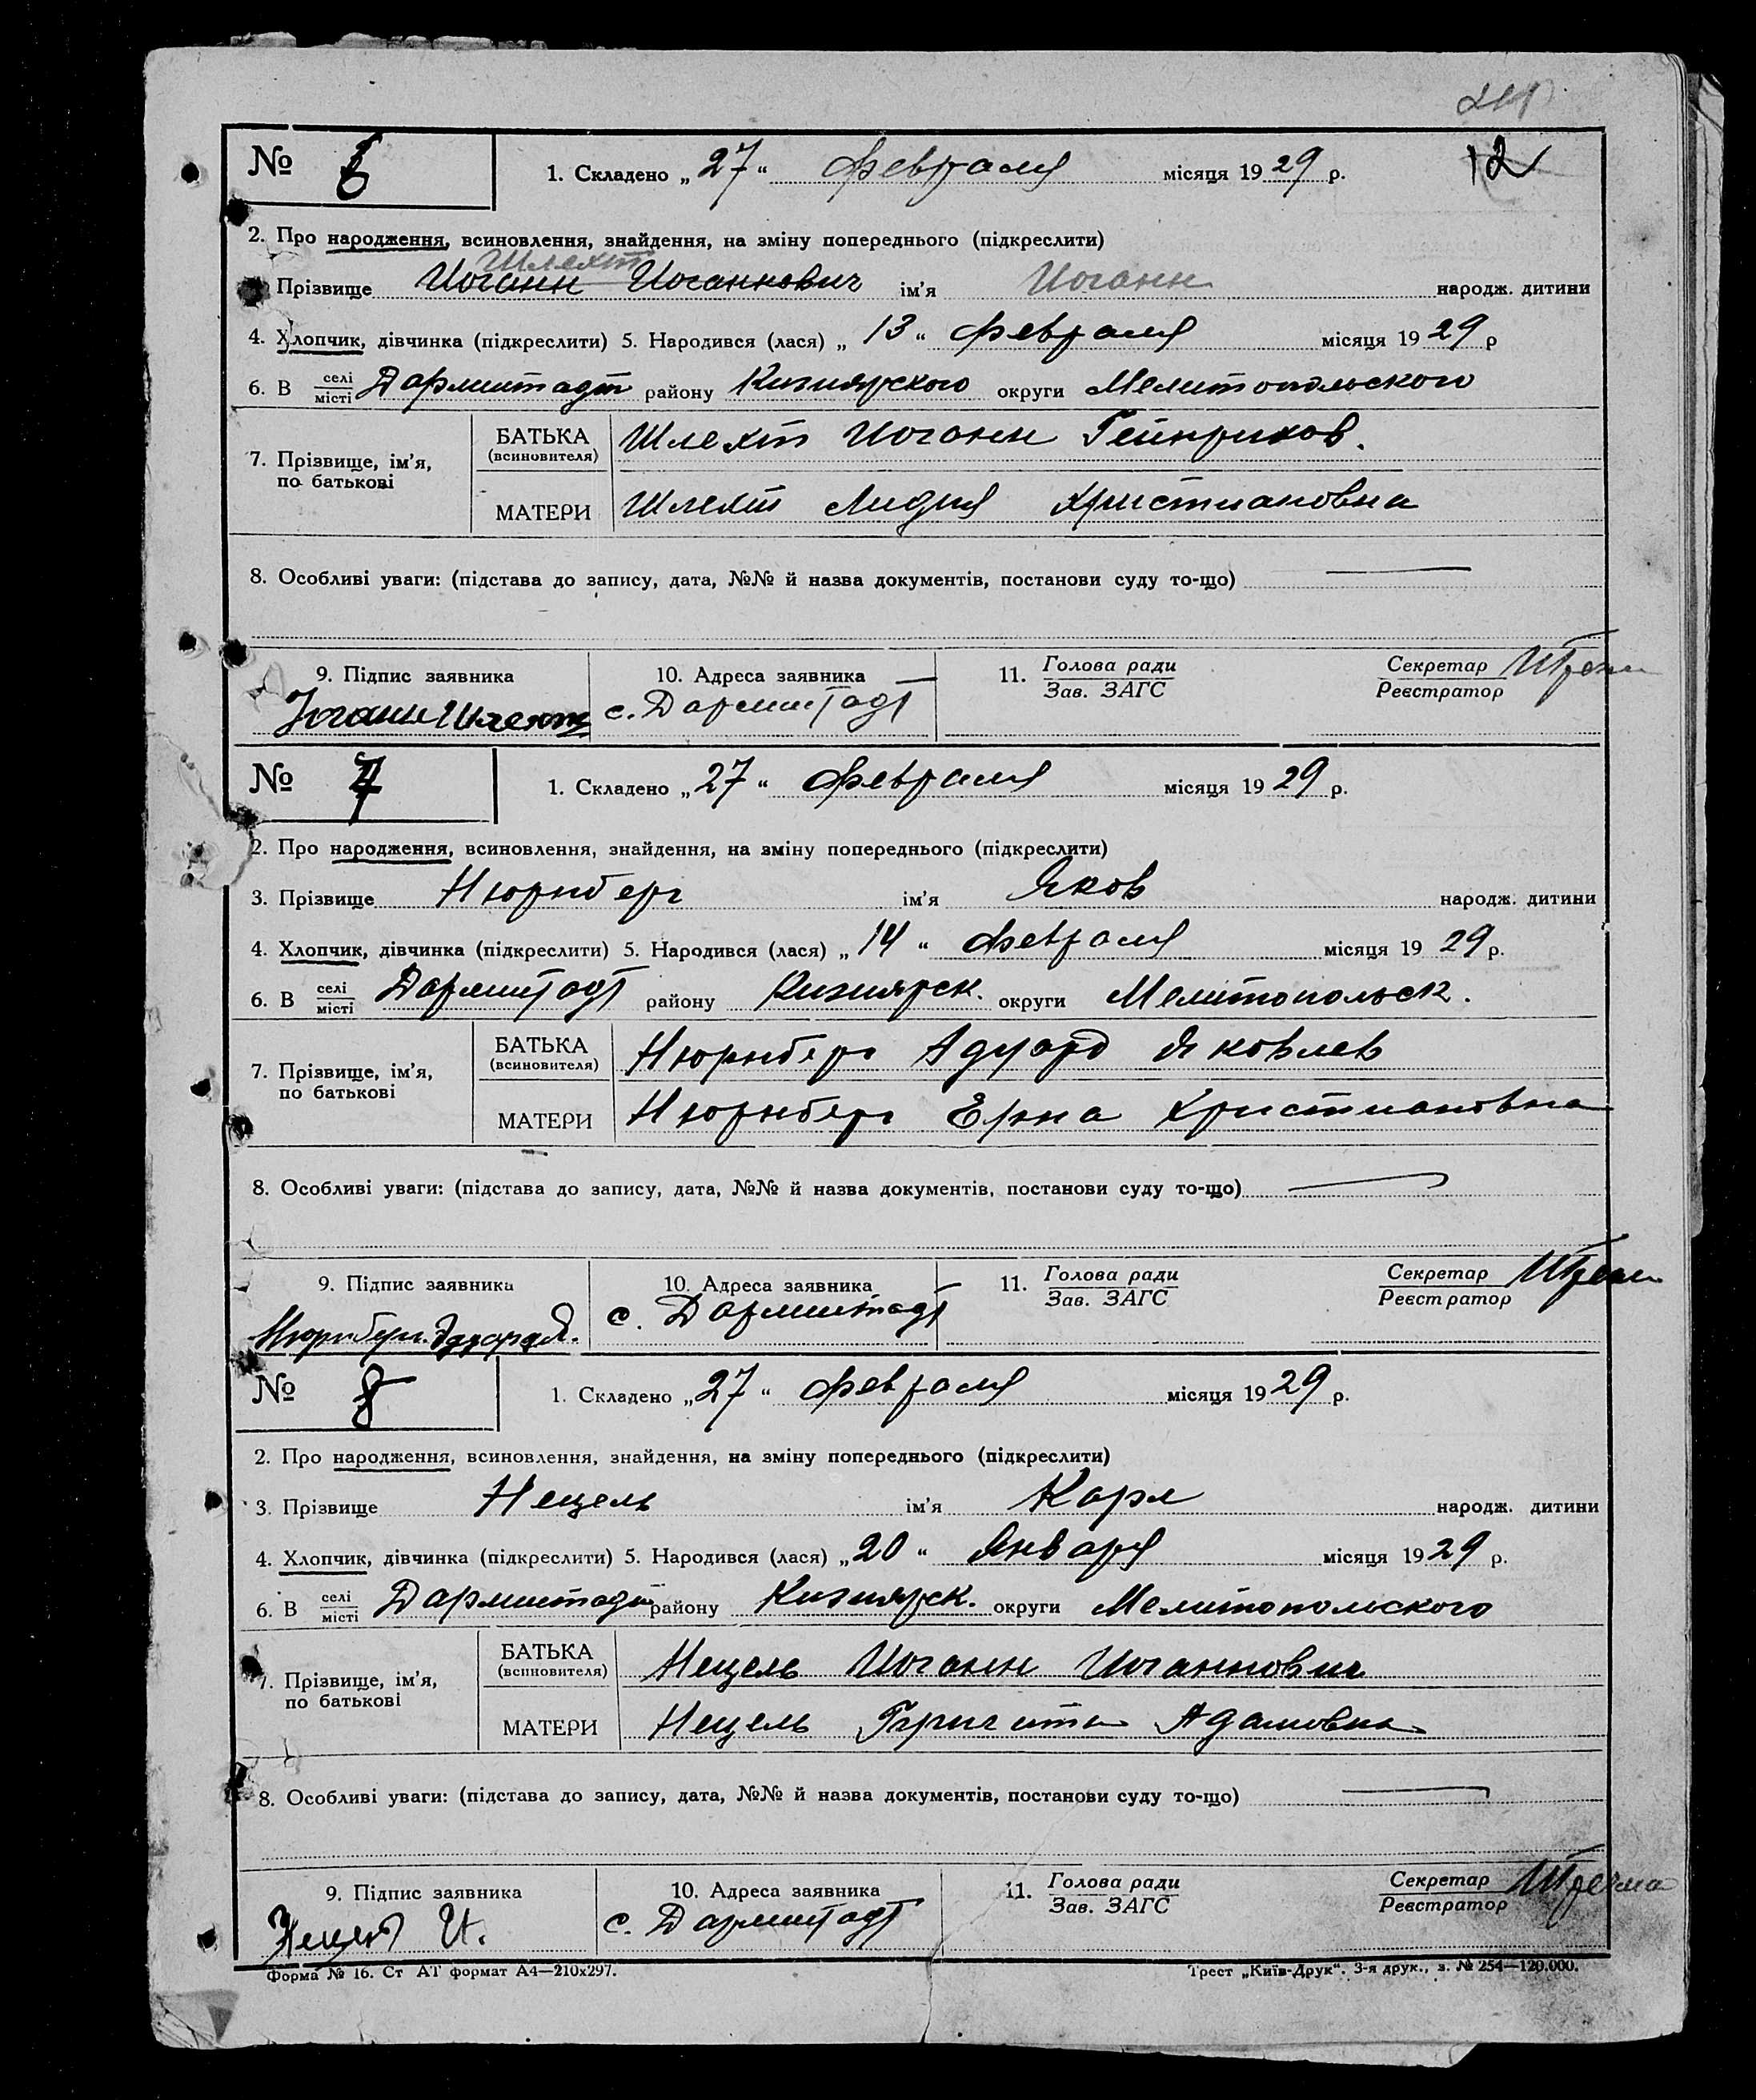 12
№ 6 1. Складено „27“ февраля місяця 1929 р.
2. Про народження, всиновлення, знайдення, на зміну попереднього (підкреслити)
Шлехт
Прізвище Иоганн Иоганнович ім'я Иоганн народж. дитини
4. Хлопчик, дівчинка (підкреслити) 5. Народився (лася) „13“ февраля місяця 1929 р
6. В селі місті Дармштадт району Кизиярского округи Мелитопольского
7. Прізвище, ім'я, по батькові
БАТЬКА (всиновителя) Шлехт Иоганн Гейнрихов.
МАТЕРИ Шлехт Лидия Христиановна
8. Особливі уваги: (підстава до запису, дата, №№ й назва документів, постанови суду то-що)
9. Підпис заявника 10. Адреса заявника 11. Голова ради Зав. ЗАГС Секретар Реєстратор
Иоганн Шлехт с. Дармштадт
№ 7 1. Складено „27“ февраля місяця 1929 р.
2. Про народження, всиновлення, знайдення, на зміну попереднього (підкреслити)
3. Прізвище Нюрнберг ім'я Яков народж. дитини
4. Хлопчик, дівчинка (підкреслити) 5. Народився (лася) „14“ февраля місяця 1929 р.
6. В селі місті Дармштадт району Кизиярск. округи Мелитопольск.
7. Прізвище, ім'я, по батькові
БАТЬКА (всиновителя) Нюрнберг Адуард Яковлев
МАТЕРИ Нюрнберг Ерна Христиановна
8. Особливі уваги: (підстава до запису, дата, №№ й назва документів, постанови суду то-що)
9. Підпис заявника 10. Адреса заявника 11. Голова ради Зав. ЗАГС Секретар Реєстратор
Нюрнберг. Эдуард Я. с. Дармштадт
№ 8 1. Складено „27“ февраля місяця 1929 р.
2. Про народження, всиновлення, знайдення, на зміну попереднього (підкреслити)
3. Прізвище Нецель ім'я Карл народж. дитини
4. Хлопчик, дівчинка (підкреслити) 5. Народився (лася) „20“ Января місяця 1929 р.
6. В селі місті Дармштадт району Кизиярск. округи Мелитопольского
7. Прізвище, ім'я, по батькові
БАТЬКА (всиновителя) Нецель Иоганн Иоганнович
МАТЕРИ Нецель Адамовна
8. Особливі уваги: (підстава до запису, дата, №№ й назва документів, постанови суду то-що)
9. Підпис заявника 10. Адреса заявника 11. Голова ради Зав. ЗАГС Секретар Реєстратор
Нецель И. с. Дармштадт
Форма № 16. Ст АТ формат А4—210х297. Трест „Київ-Друк“. 3-я друк., з. № 254—120.000.